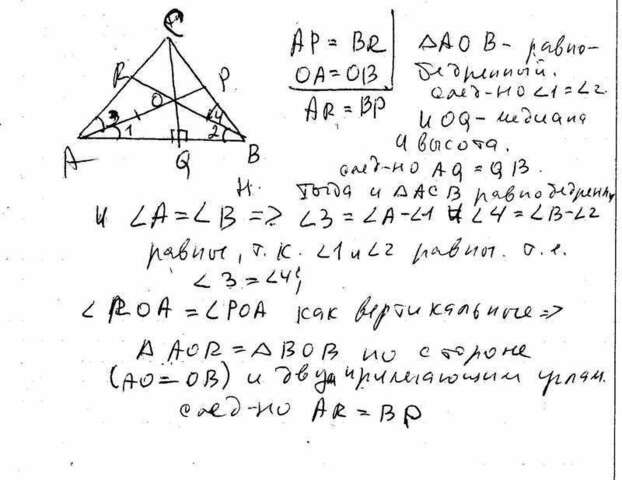 C
R
P
O
3
1
4
2
A
Q
B
H.
AP = BR
OA = OB
AR = BP
△AOB - равно-
бедренный.
след-но ∠1=∠2
и OQ - медиана
и высота.
след-но AQ = QB.
Тогда и △ACB равнобедренн
и ∠A = ∠B => ∠3 = ∠A-∠1 и ∠4 = ∠B-∠2
равные, т.к. ∠1 и ∠2 равны. т.е.
∠3 = ∠4;
∠ROA = ∠POA как вертикальные =>
△AOR = △BOB по стороне
(AO = OB) и двум прилегающим углам.
след-но AR = BP